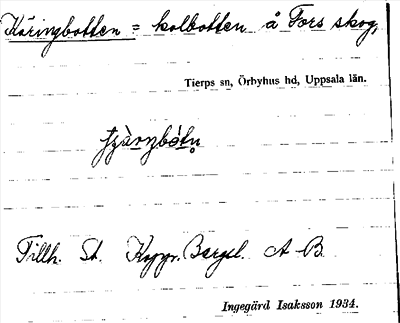 Käringbotten = kolbotten å Fors skog,
Tierps sn, Örbyhus hd, Uppsala län.
Tillh. St. Koppr. Bergsl. A B.
Ingegärd Isaksson 1934.